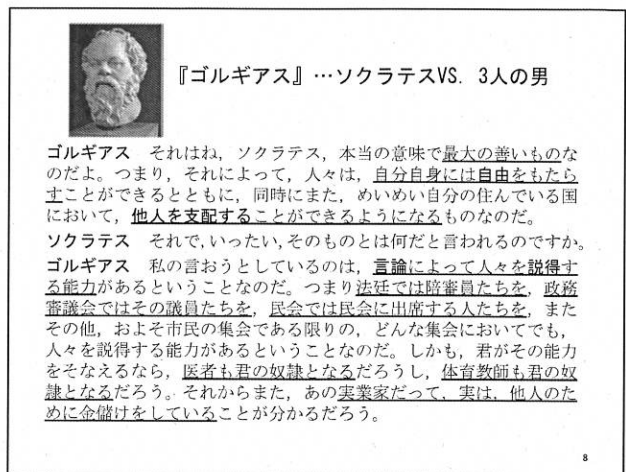 『ゴルギアス』…ソクラテスVS. 3人の男
ゴルギアス　それはね，ソクラテス，本当の意味で最大の善いものな
のだよ。つまり，それによって，人々は，自分自身には自由をもたら
すことができるとともに，同時にまた，めいめい自分の住んでいる国
において，他人を支配することができるようになるものなのだ。
ソクラテス　それで，いったい，そのものとは何だと言われるのですか。
ゴルギアス　私の言おうとしているのは，言論によって人々を説得す
る能力があるということなのだ。つまり法廷では陪審員たちを，政務
審議会ではその議員たちを，民会では民会に出席する人たちを，また
その他，およそ市民の集会である限りの，どんな集会においてでも，
人々を説得する能力があるということなのだ。しかも，君がその能力
をそなえるなら，医者も君の奴隷となるだろうし，体育教師も君の奴
隷となるだろう。それからまた，あの実業家だって，実は，他人のた
めに金儲けをしていることが分かるだろう。
8